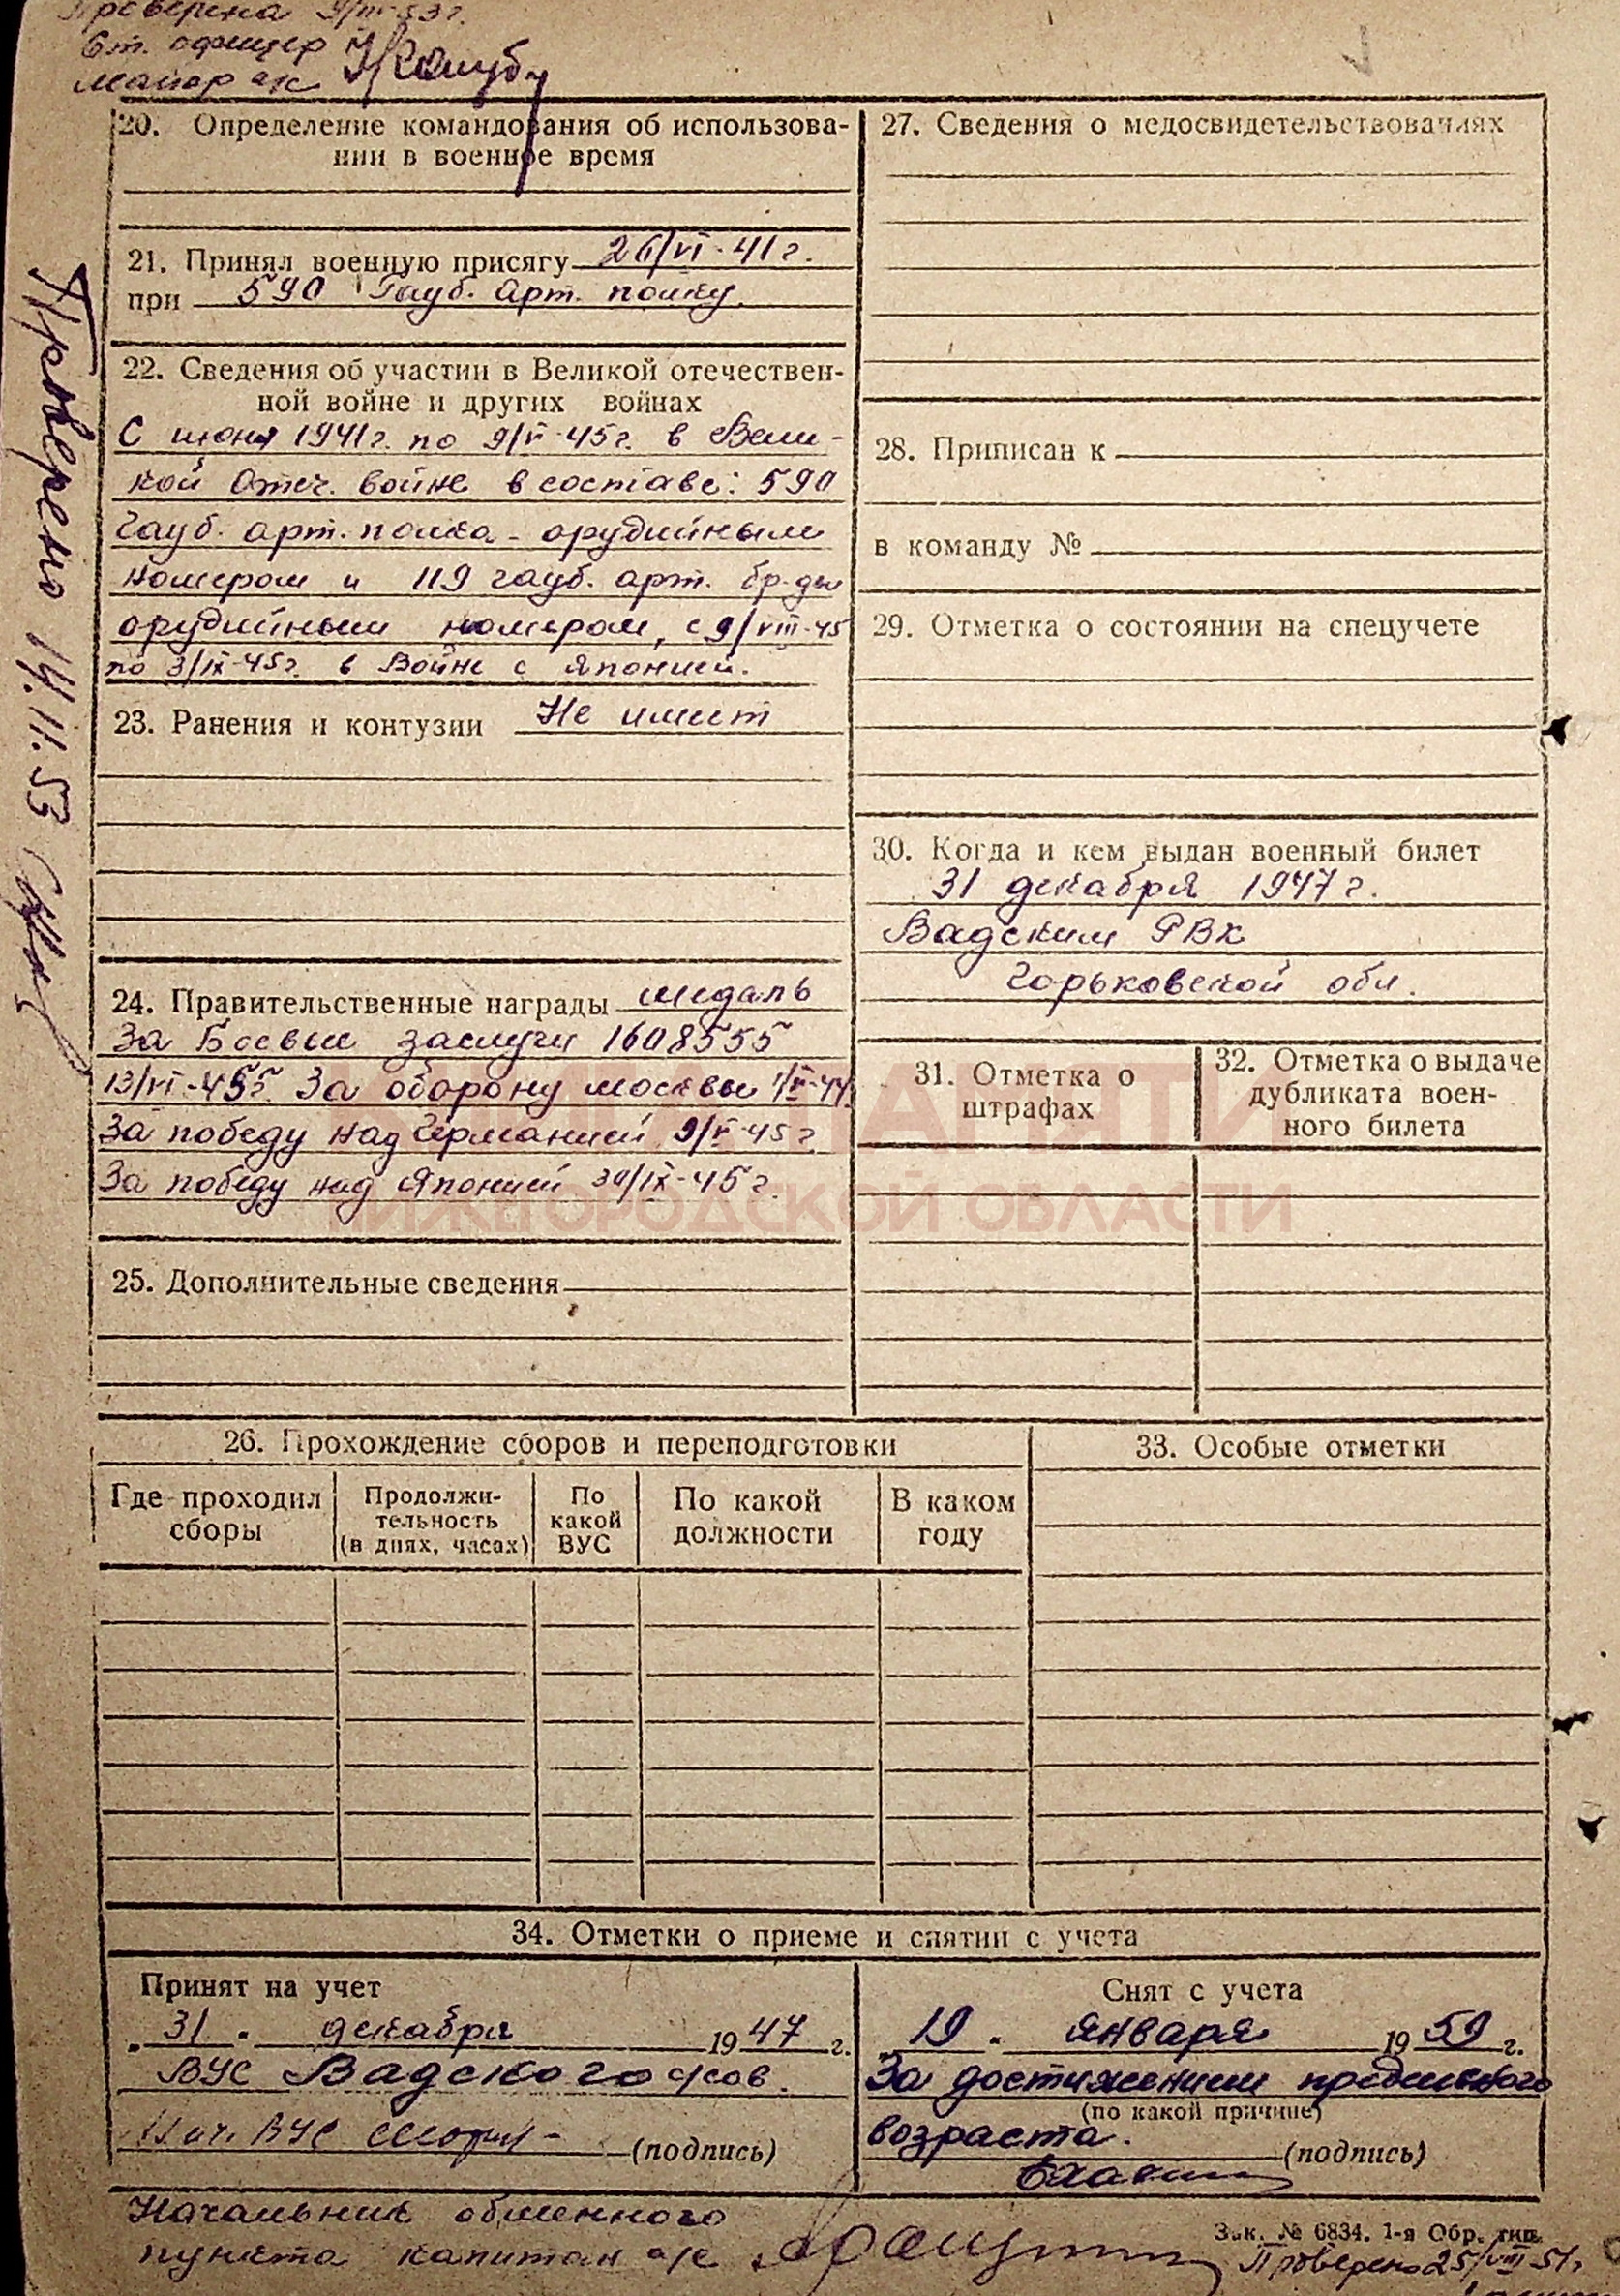 Проверена 9/III-53г.
Ст. офицер
майор а/с
20. Определение командования об использова-
нии в военное время
21. Принял военную присягу 26/VI-41г.
при 590 Гауб. Арт. полку.
22. Сведения об участии в Великой отечествен-
ной войне и других войнах
С июня 1941г. по 9/V-45г. в Вели-
кой Отеч. войне в составе: 590
Гауб. арт. полка - орудийным
номером и 119 гауб. арт. бр-ды
орудийным номером, с 9/VIII-45
по 3/IX-45г. в Войне с Японией.
23. Ранения и контузии Не имеет
24. Правительственные награды медаль
За Боевые заслуги 1608555
13/VI-45г. За оборону Москвы
За победу над Германией 9/V-45г.
За победу над Японией 30/IX-45г.
25. Дополнительные сведения
26. Прохождение сборов и переподготовки
Где проходил сборы
Продолжи-
тельность
(в днях, часах)
По
какой
ВУС
По какой
должности
В каком
году
27. Сведения о медосвидетельствованиях
28. Приписан к
в команду №
29. Отметка о состоянии на спецучете
30. Когда и кем выдан военный билет
31 декабря 1947г.
Вадским РВК
Горьковской обл.
31. Отметка о
штрафах
32. Отметка о выдаче
дубликата воен-
ного билета
33. Особые отметки
34. Отметки о приеме и снятии с учета
Принят на учет
„31" декабря 1947 г.
ВУС Вадского
Нач. ВУС (подпись)
Снят с учета
„19" января 1959 г.
За достижением предельного
(по какой причине)
возраста.
(подпись)
Начальник обменного
пункта капитан а/с
Зак. № 6834. 1-я Обр. тип.
Проверено 25/VIII-51г
Проверено 14.11.53
КНИГА ПАМЯТИ
НИЖЕГОРОДСКОЙ ОБЛАСТИ